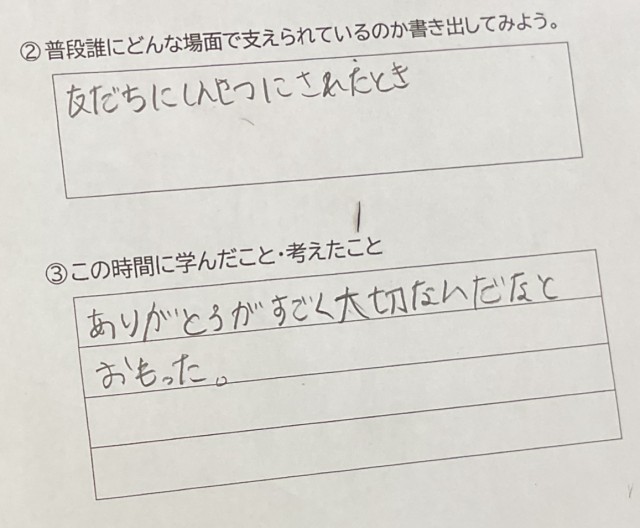 ②普段誰にどんな場面で支えられているのか書き出してみよう。
友だちにしんせつにされたとき
③この時間に学んだこと・考えたこと
ありがとうがすごく大切ないんだなと
おもった。